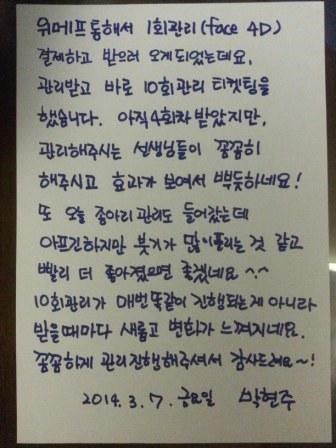 위메프통해서 1회관리(face 4D)
결제하고 받으러 오게되었는데요,
관리받고 바로 10회관리 티켓팅을
했습니다. 아직4회차 받았지만,
관리해주시는 선생님들이 꼼꼼히
해주시고 효과가 보여서 뿌듯하네요!
또 오늘 종아리관리도 들어갔는데
아프긴하지만 붓기가 많이풀리는 것 같고
빨리 더 좋아졌으면 좋겠네요 ^.^
10회관리가 매번똑같이 진행되는게 아니라
받을때마다 새롭고 변화가 느껴지네요.
꼼꼼하게 관리진행해주셔서 감사드려요~!
2014. 3. 7. 금요일 박현주